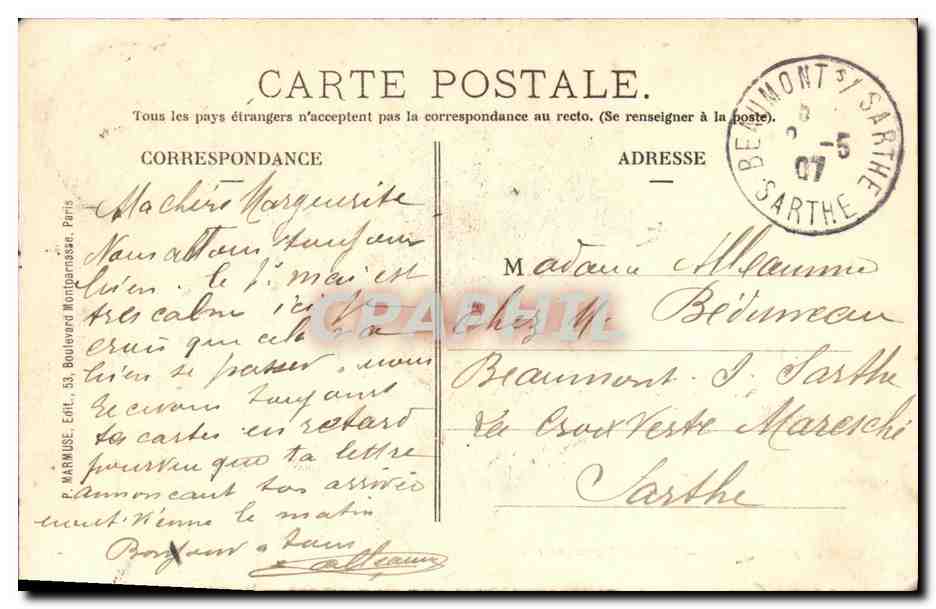 CARTE POSTALE.
Tous les pays étrangers n'acceptent pas la correspondance au recto. (Se renseigner à la poste).
CORRESPONDANCE
ADRESSE
BEAUMONT S/ SARTHE
-5
07
SARTHE
P. MARMUSE, Edit., 53, Boulevard Montparnasse, Paris
Ma chère Marguerite
Nous allons toujour
bien. le 1r mai est
tres calme ici je
crois que cela va
bien se passer. nous
recevons toujours
ta cartes en retard
pourvu que ta lettre
annoncant ton arrivée
nous vienne le matin
Bonjour a tous
Alleaume
Madame Alleaume
Chez M. Béduneau
Beaumont. S. Sarthe
La Croix Verte Maresché
Sarthe
CPAPHIL